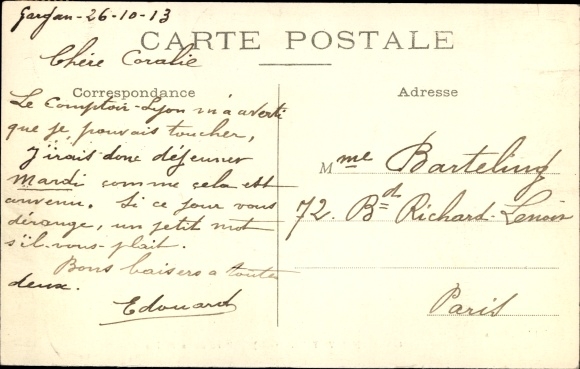 Gargan-26-10-13
CARTE POSTALE
Chère Coralie
Correspondance
Le Comptoir-Lyon m'a averti
que je pouvais toucher,
j'irais donc déjeuner
Mardi comme cela est
convenu. Si ce jour vous
dérange, un petit mot
s'il-vous-plait.
Bons baisers a toutes
deux.
Edouard
Adresse
Mme Barteling
72. Bd Richard-Lenoir
Paris